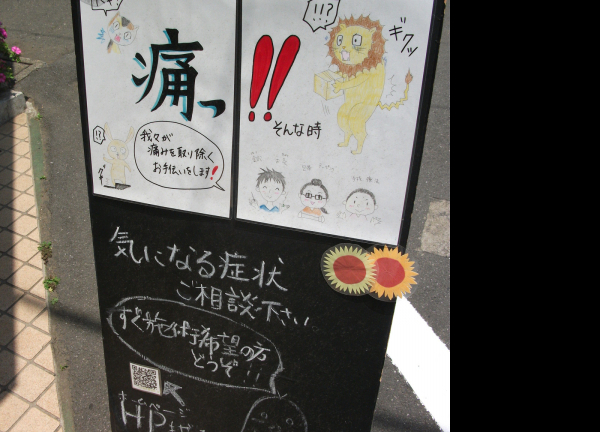 !?
痛っ
!!
!!?
ギクッ
そんな時
!?
我々が
痛みを取り除く
お手伝いをします!
気になる症状
ご相談下さい
すぐ施術希望の方
どうぞ!!
ホームページ
HP